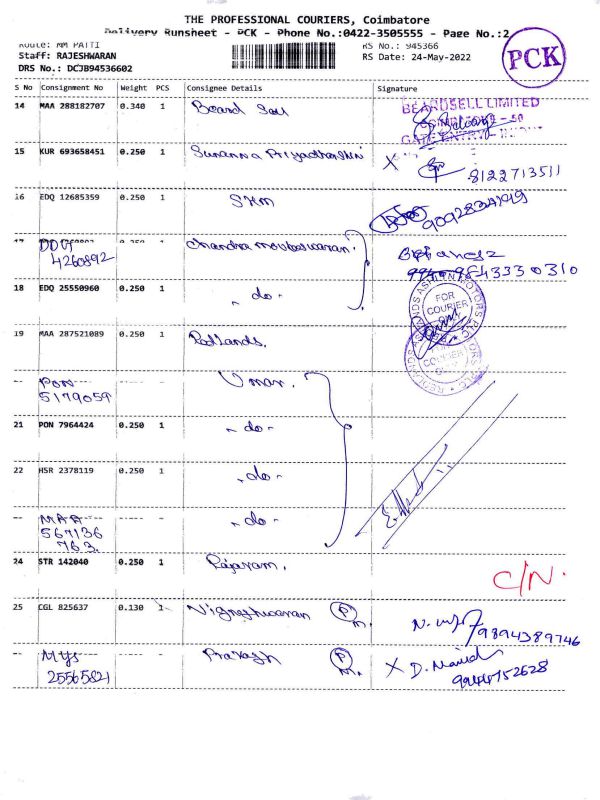 THE PROFESSIONAL COURIERS, Coimbatore
Delivery Runsheet - PCK - Phone No.:0422-3505555 - Page No.:2
PCK
Route: MM PATTI RS No.: 945366
Staff: RAJESHWARAN RS Date: 24-May-2022
DRS No.: DCJB94536602
S No Consignment No Weight PCS Consignee Details Signature
14 MAA 288182707 0.340 1 Board Sell
BEARDSELL LIMITED
15 KUR 693658451 0.250 1 Sunanna Priyadharshini X
8122713511
16 EDQ 12685359 0.250 1 SKM
17 Chandra mouleeswaran.
4260892
18 EDQ 25550960 0.250 1 - do -
FOR COURIER ONLY
19 MAA 287521089 0.250 1 Redlands.
REDLANDS ASHLYN MOTORS PLC
COURIER
-- PON ---- ----- -- Umar.
5179059
21 PON 7964424 0.250 1 - do -
22 HSR 2378119 0.250 1 - do -
-- MAA ---- ----- -- - do -
567136
763.
24 STR 142040 0.250 1 Rajaram. C/N.
25 CGL 825637 0.130 1 Vigneshwaran P M.
9894389746
-- MYS ---- ----- -- Prakash P M. X
25565821 9944752628